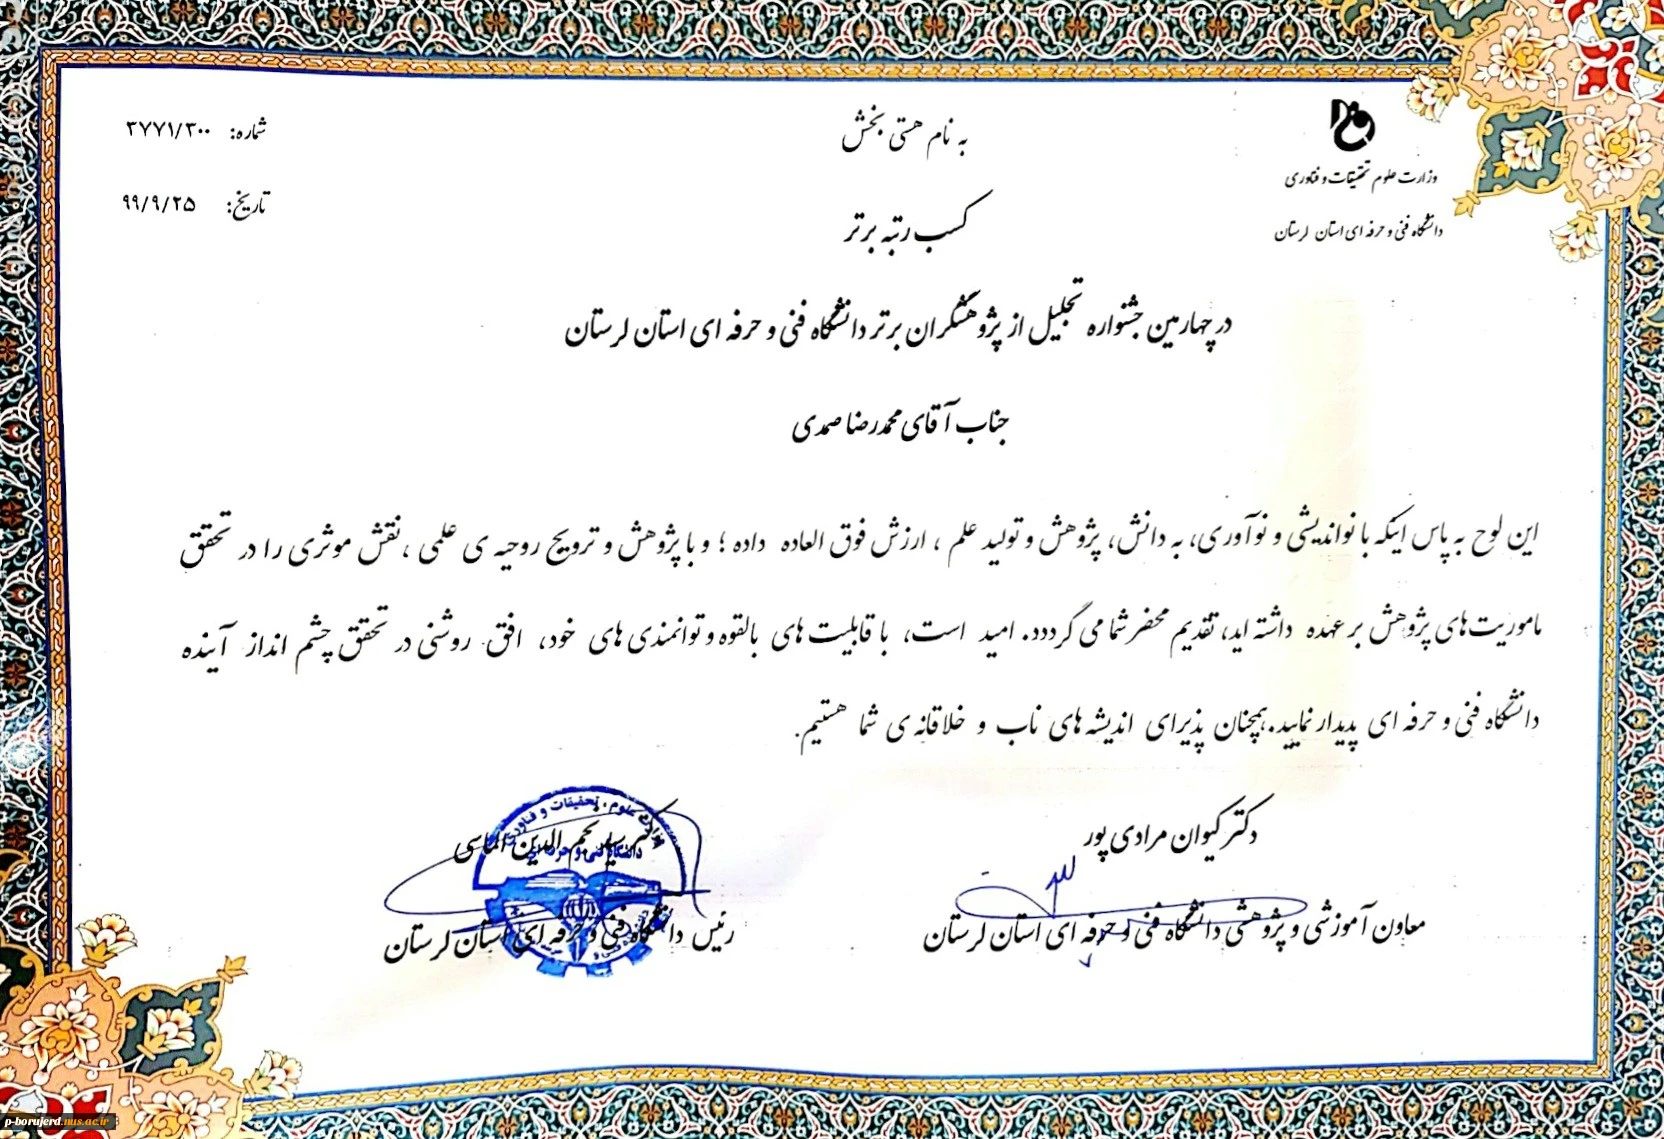 به نام هستی بخش
وزارت علوم تحقیقات و فناوری
دانشگاه فنی و حرفه ای استان لرستان
شماره: ۳۷۷۱/۳۰۰
تاریخ: ۹۹/۹/۲۵
کسب رتبه برتر
در چهارمین جشنواره تجلیل از پژوهشگران برتر دانشگاه فنی و حرفه ای استان لرستان
جناب آقای محمدرضا صمدی
این لوح به پاس اینکه با نواندیشی و نوآوری، به دانش، پژوهش و تولید علم ، ارزش فوق العاده داده ؛ و با پژوهش و ترویج روحیه ی علمی ،نقش موثری را در تحقق
ماموریت های پژوهش بر عهده داشته اید، تقدیم محضر شما می گرددد. امید است، با قابلیت های بالقوه و توانمندی های خود، افق روشنی در تحقق چشم انداز آینده
دانشگاه فنی و حرفه ای پدیدار نمایید.همچنان پذیرای اندیشه های ناب و خلاقانه ی شما هستیم.
دکتر کیوان مرادی پور
معاون آموزشی و پژوهشی دانشگاه فنی و حرفه ای استان لرستان
دکتر سید نجم الدین الماسی
رئیس دانشگاه فنی و حرفه ای استان لرستان
وزارت علوم، تحقیقات و فناوری
دانشگاه فنی و حرفه ای
p-borujerd.nus.ac.ir